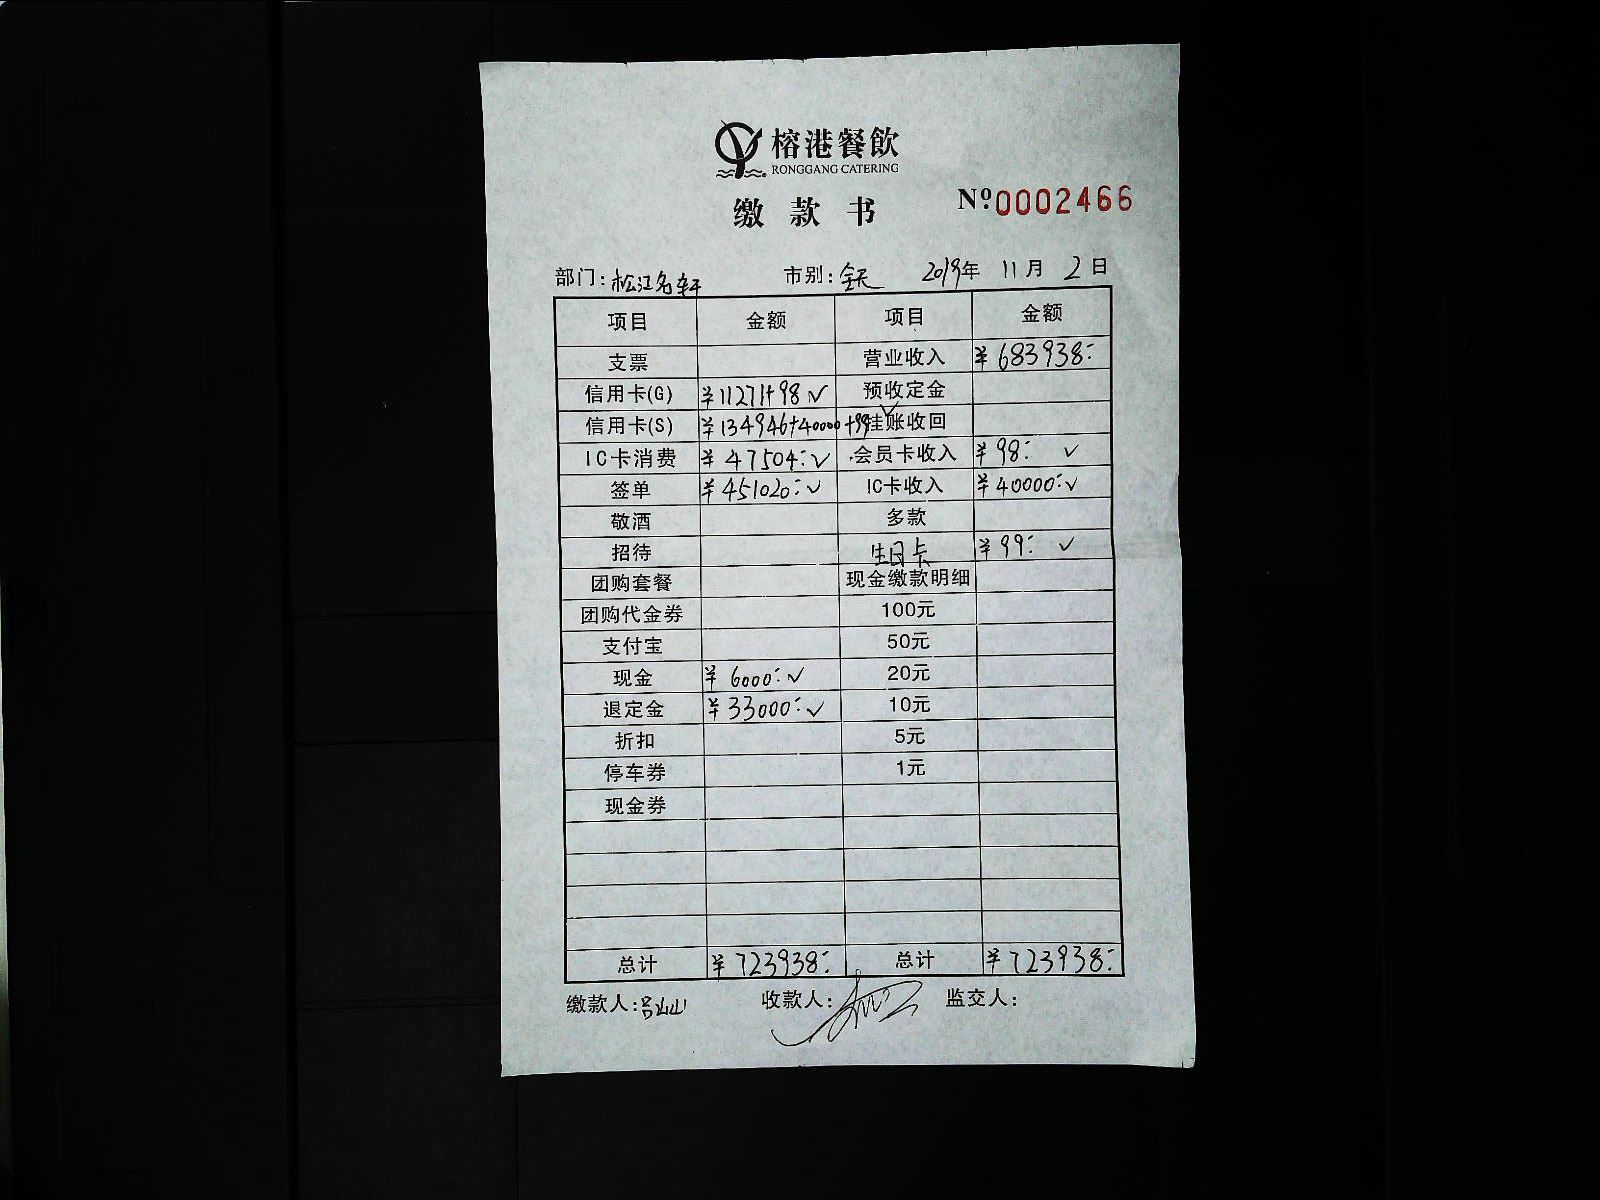 榕港餐飲
RONGGANG CATERING
缴款书 Nº0002466
部门:松江名轩 市别:全天 2019年 11月 2日
项目 金额 项目 金额
支票 营业收入 ¥683938:
信用卡(G) ¥11271+98 ✓ 预收定金
信用卡(S) ¥134946+40000+99 ✓ 挂账收回
IC卡消费 ¥47504: ✓ 会员卡收入 ¥98: ✓
签单 ¥451020: ✓ IC卡收入 ¥40000: ✓
敬酒 多款
招待 生日卡 ¥99: ✓
团购套餐 现金缴款明细
团购代金券 100元
支付宝 50元
现金 ¥6000: ✓ 20元
退定金 ¥33000: ✓ 10元
折扣 5元
停车券 1元
现金券
总计 ¥723938: 总计 ¥723938:
缴款人:吕山山 收款人: 监交人: